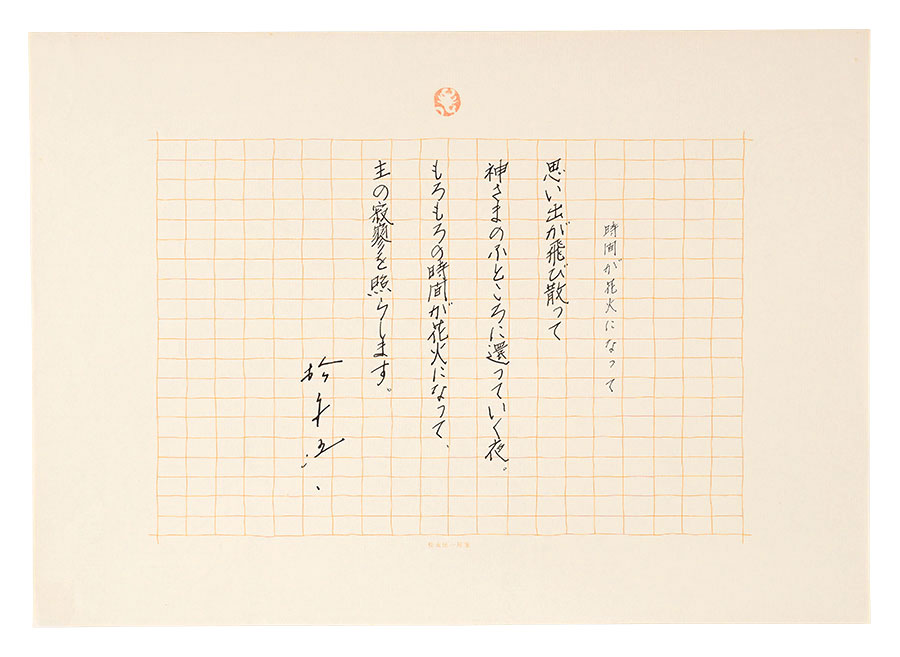 時間が花火になって
思い出が飛び散って
神さまのふところに還っていく夜。
もろもろの時間が花火になって、
主の寂寥を照らします。